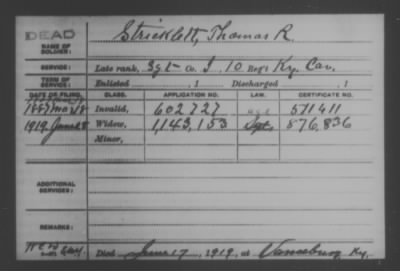 DEAD
NAME OF SOLDIER: Stricklett, Thomas R.
SERVICE: Late rank, Sgt Co. I, 10 Reg't Ky. Cav.
TERM OF SERVICE: Enlisted , 1 Discharged , 1
DATE OF FILING. CLASS. APPLICATION NO. LAW. CERTIFICATE NO.
1887 Mar 28 Invalid, 602727 571411
1919 June 28 Widow, 1,143,153 Sept. 876,836
Minor,
ADDITIONAL SERVICES:
REMARKS:
Died June 17, 1919, at Vanceburg Ky.